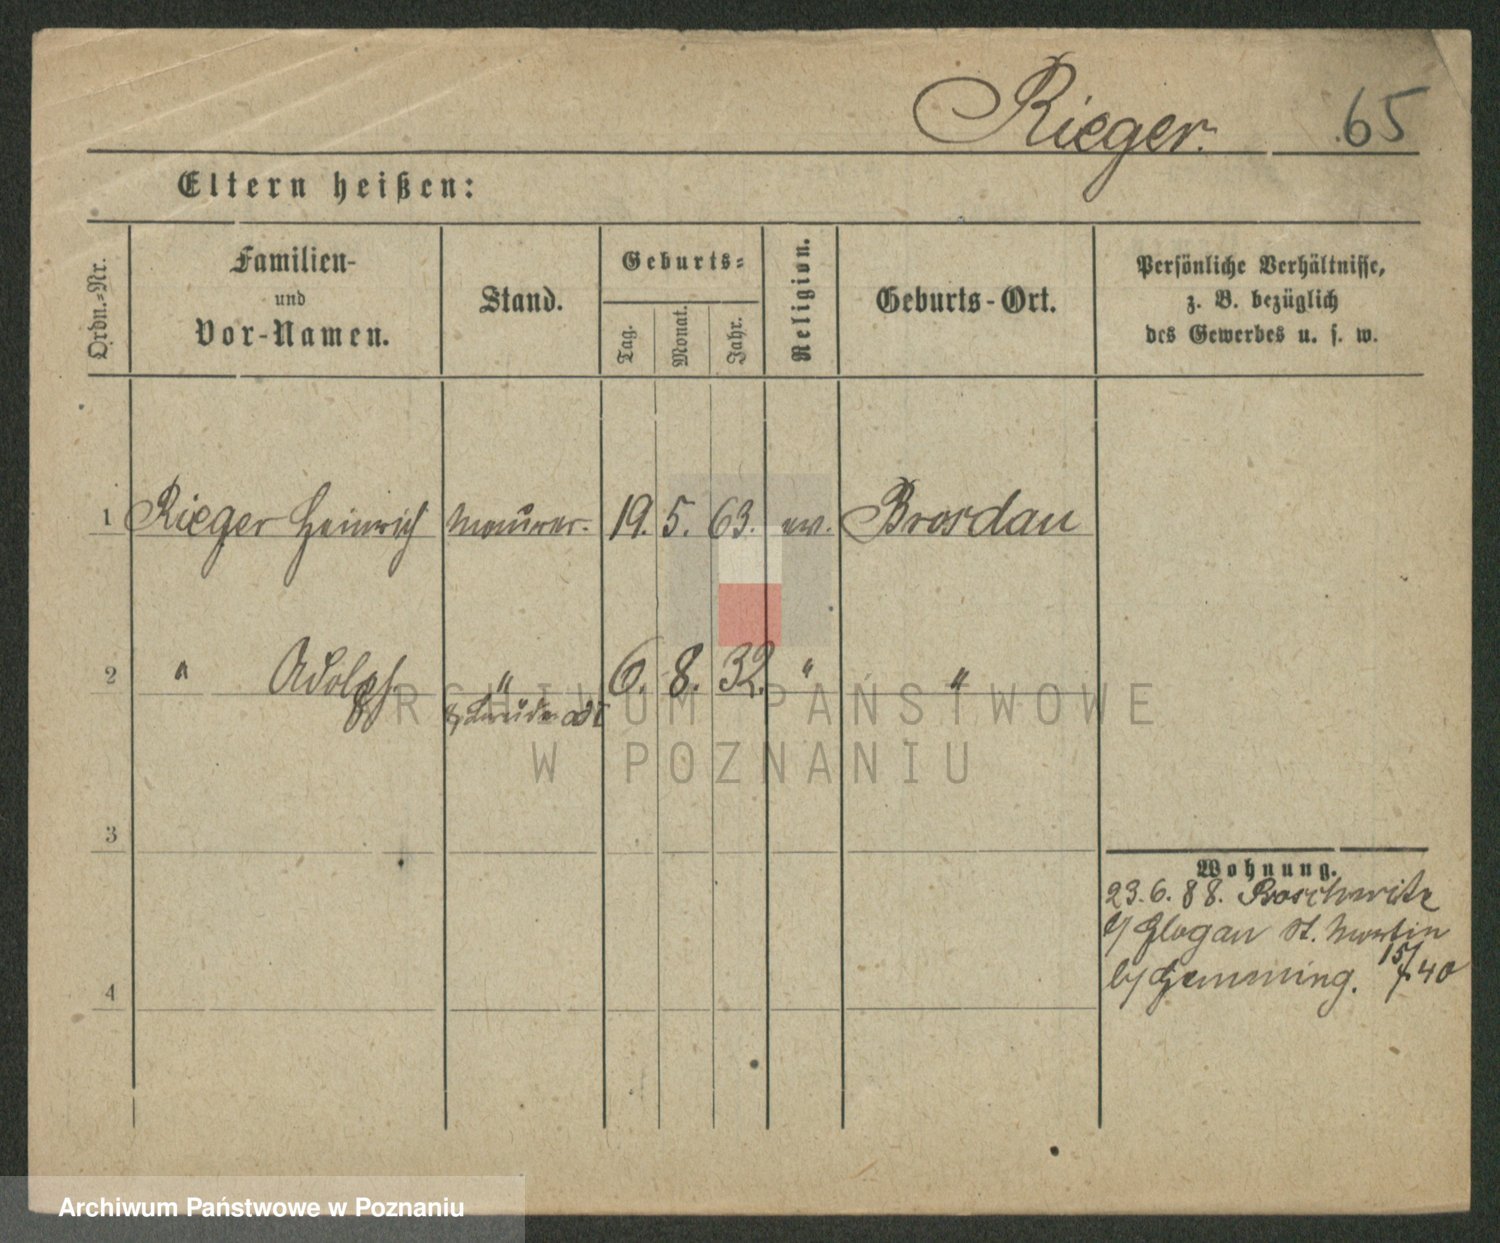 Rieger. 65
Eltern heißen:
Ordn.-Nr.
Familien-
und
Vor-Namen.
Stand.
Geburts-
Tag.
Monat.
Jahr.
Religion.
Geburts-Ort.
Persönliche Verhältnisse,
z. B. bezüglich
des Gewerbes u. s. w.
1 Rieger Heinrich Maurer. 19. 5. 63. ev. Brosdau
2 " Adolph " 6. 8. 32. " "
ARCHIWUM PAŃSTWOWE
W POZNANIU
3
Wohnung.
23.6.88. Boschwitz
b/ Glogau St. Martin
b/ Gemming. 15/7. 40
4
Archiwum Państwowe w Poznaniu